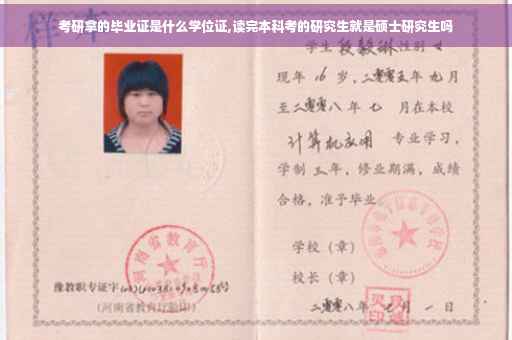 考研拿的毕业证是什么学位证,读完本科考的研究生就是硕士研究生吗
样本
学生段毅琳性别女
现年16岁，二零零五年九月
至二零零八年七月在本校
计算机应用 专业学习，
学制三年，修业期满，成绩
合格，准予毕业
学校（章）
校长（章）
豫教职专证字
(河南省教育厅验印)
二零零八年七月一日
河南省教育厅